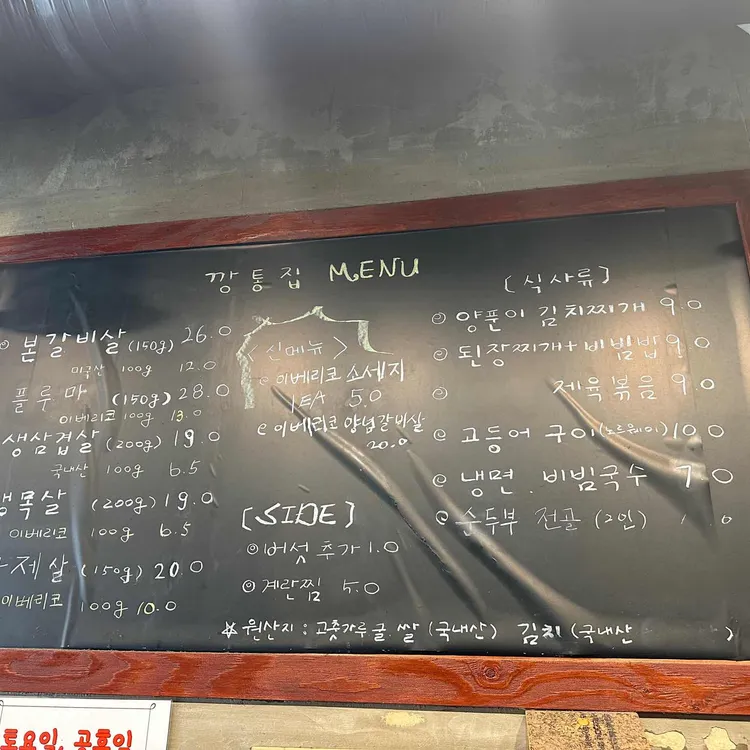 깡통집 MENU
본갈비살 (150g) 26.0
미국산 100g 12.0
플루마 (150g) 28.0
이베리코 100g 13.0
생삼겹살 (200g) 19.0
국내산 100g 6.5
목살 (200g) 19.0
이베리코 100g 6.5
제살 (150g) 20.0
이베리코 100g 10.0
<신메뉴>
이베리코 소세지
1EA 5.0
이베리코 양념갈비살
20.0
[SIDE]
버섯 추가 1.0
계란찜 5.0
[식사류]
양푼이 김치찌개 9.0
된장찌개+비빔밥 9.0
제육볶음 9.0
고등어 구이(노르웨이) 10.0
냉면. 비빔국수 7.0
순두부 전골 (2인)
원산지 : 고춧가루 쌀 (국내산) 김치 (국내산 )
토요일, 공휴일